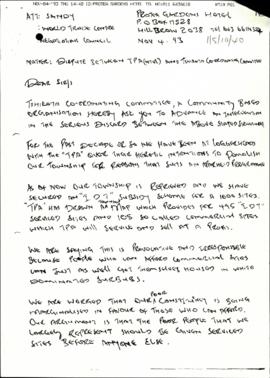 NOV-04-'93 THU 14:42 ID:PROTEA GARDENS HOTEL TEL NO:
ATT: SANDY
WORLD TRADE CENTRE
NEGOTIATION COUNCIL
PROTEA GARDENS HOTEL
P.O BOX 17528
HILLBROW 2038
NOV 4. 93
MATTER: DISPUTE BETWEEN TPA AND COORDINATING COMMITTEE
DEAR SIRS
CO-ORDINATING COMMITTEE, A COMMUNITY BASED
ORGANISATION HEREBY ASK YOU TO ADVANCE AN INTERVENTION
IN THE SERIOUS DISCORD BETWEEN THE ABOVE
FOR THE PAST DECADE OR SO WE HAVE BEEN AT LOGGERHEADS
WITH THE "TPA" OVER THEIR INTENTIONS TO DEMOLISH
OUR TOWNSHIP FOR REASONS THAT SUITS AN
AS OF NOW OUR TOWNSHIP IS REPRIEVED AND WE HAVE
SECURED AN "I.D.T" SUBSIDY SCHEME FOR SITES.
"TPA" HAS DRAWN WHICH PROVIDES FOR 495 "I.D.T"
SERVICED SITES AND 105 SO CALLED COMMERCIAL SITES
WHICH TPA WILL SERVICE AND SELL AT A PROFIT.
WE ARE SAYING THIS IS PROVOCATIVE AND IRRESPONSIBLE
BECAUSE PEOPLE WHO CAN AFFORD COMMERCIAL SITES
CAN JUST AS WELL GET THEMSELVES HOUSED IN WHITE
DOMINATED SUBURBS.
WE ARE WORRIED THAT OUR POOR CONSTITUENCY IS BEING
MARGINALISED IN FAVOUR OF THOSE WHO CAN AFFORD.
OUR ARGUMENT IS THAT THE POOR PEOPLE THAT WE
LARGELY REPRESENT SHOULD BE GIVEN SERVICED
SITES BEFORE ANYONE ELSE.